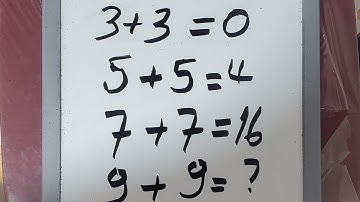 3+3=0
5+5=4
7+7=16
9+9=?